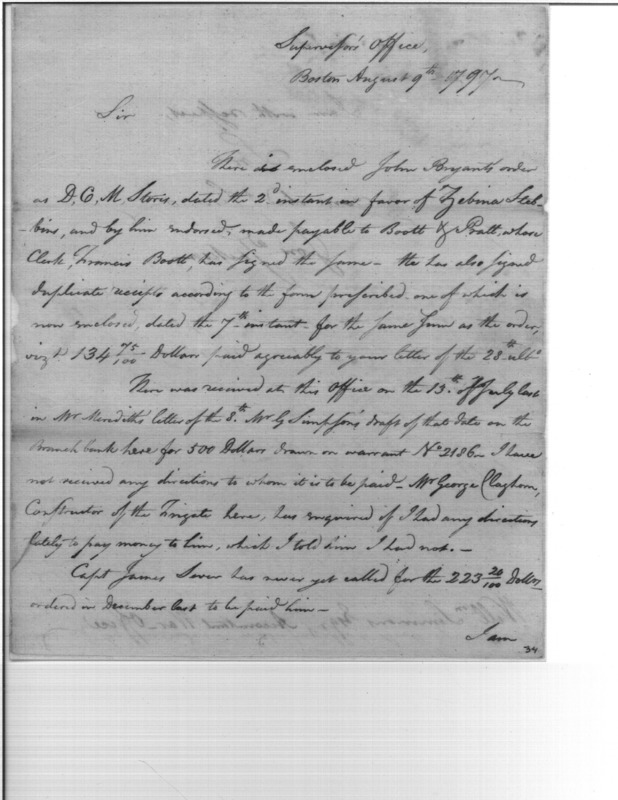 Supervisor's Office,
Boston August 9th 1797
Sir
There is enclosed John Bryant's order
as D, C, M, Stores, dated the 2d instant in favor of Zebina Steb
-bins, and by him endorsed, made payable to Boott & Pratt, whose
Clerk, Francis Boott, has signed the same - He has also signed
duplicate receipts according to the form prescribed one of which is
now enclosed, dated the 7th instant - for the same sum as the order,
vizt 134 75/100 Dollars paid agreeably to your letter of the 28th ulto
There was received at this Office on the 13th of July last
in Mr Meredith's letter of the 8th Mr G Simpson's draft of that date on the
Branch bank here for 500 Dollars drawn on warrant No 2186 - I have
not received any directions to whom it is to be paid - Mr George Claghorn,
Constructor of the Frigate here, has enquired if I had any directions
lately to pay money to him, which I told him I had not. -
Capt James Sever has never yet called for the 223 20/100 Dollars
ordered in December last to be paid him -
I am
34